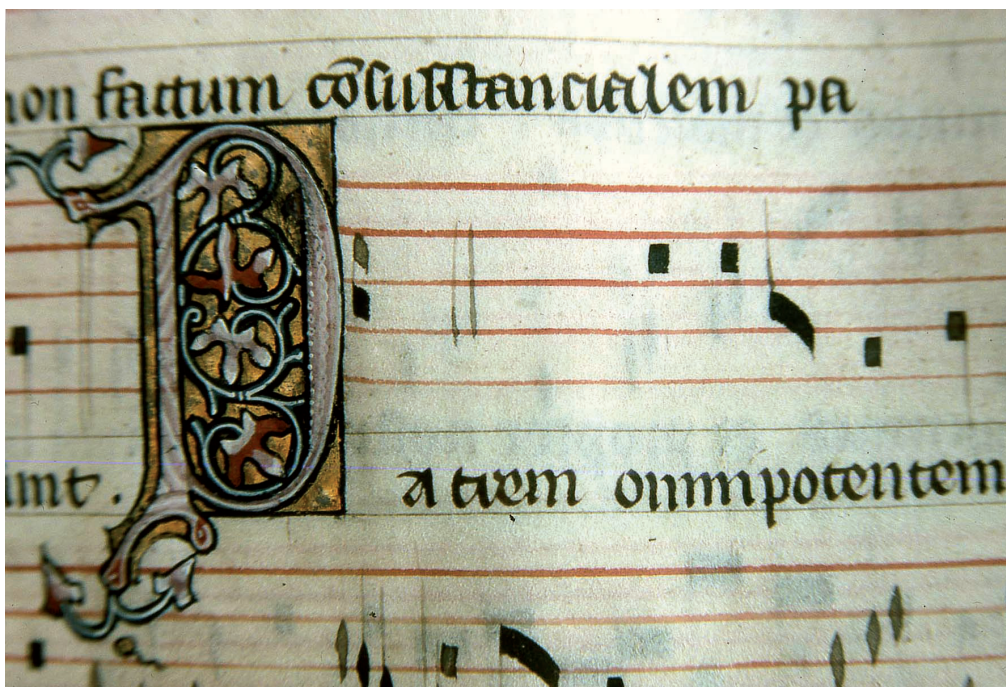 non factum cōsubstancialem pa
unt. Patrem omnipotentem